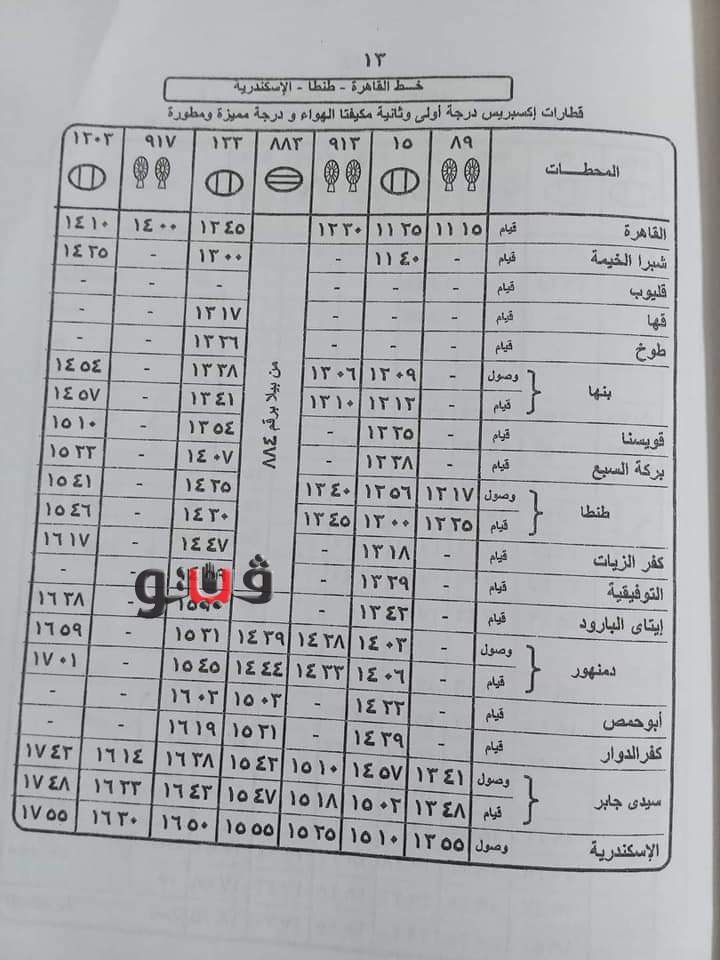 ١٣
خط القاهرة - طنطا - الإسكندرية
قطارات إكسبريس درجة أولى وثانية مكيفتا الهواء و درجة مميزة ومطورة
المحطات ٨٩ ١٥ ٩١٣ ٨٨٣ ١٢٣ ٩١٧ ١٢٠٣
القاهرة قيام ١١ ١٥ ١١ ٢٥ ١٢ ٢٠ ١٢ ٤٥ ١٤ ٠٠ ١٤ ١٠
شبرا الخيمة قيام - ١١ ٤٠ - ١٣ ٠٠ - ١٤ ٢٥
قليوب قيام - - - - - -
قها قيام - - - ١٣ ١٧ - -
طوخ قيام - - - ١٣ ٢٦ - -
بنها
وصول - ١٢ ٠٩ ١٣ ٠٦ ١٣ ٣٨ - ١٤ ٥٤
قيام - ١٢ ١٢ ١٣ ١٠ ١٣ ٤١ - ١٤ ٥٧
قويسنا قيام - ١٢ ٢٥ - ١٣ ٥٤ - ١٥ ١٠
بركة السبع قيام - ١٢ ٣٨ - ١٤ ٠٧ - ١٥ ٢٢
من بيلا برقم ٨٨٤
طنطا
وصول ١٢ ١٧ ١٢ ٥٦ ١٣ ٤٠ ١٤ ٢٥ - ١٥ ٤١
قيام ١٢ ٢٥ ١٣ ٠٠ ١٣ ٤٥ ١٤ ٣٠ - ١٥ ٤٦
كفر الزيات قيام - ١٣ ١٨ - ١٤ ٤٧ - ١٦ ١٧
التوفيقية قيام - ١٣ ٢٩ - -
إيتاى البارود قيام - ١٣ ٤٢ - - ١٦ ٣٨
دمنهور
وصول - ١٤ ٠٣ ١٤ ٢٨ ١٤ ٣٩ ١٥ ٣١ - ١٦ ٥٩
قيام - ١٤ ٠٦ ١٤ ٣٣ ١٤ ٤٤ ١٥ ٤٥ - ١٧ ٠١
أبوحمص قيام - ١٤ ٢٢ - ١٥ ٠٣ ١٦ ٠٢ - -
كفرالدوار قيام - ١٤ ٣٩ - ١٥ ٢١ ١٦ ١٩ - -
سيدى جابر
وصول ١٣ ٤١ ١٤ ٥٧ ١٥ ١٠ ١٥ ٤٢ ١٦ ٣٨ ١٦ ١٤ ١٧ ٤٣
قيام ١٣ ٤٨ ١٥ ٠٢ ١٥ ١٨ ١٥ ٤٧ ١٦ ٤٣ ١٦ ٢٢ ١٧ ٤٨
الإسكندرية وصول ١٣ ٥٥ ١٥ ١٠ ١٥ ٢٥ ١٥ ٥٥ ١٦ ٥٠ ١٦ ٣٠ ١٧ ٥٥